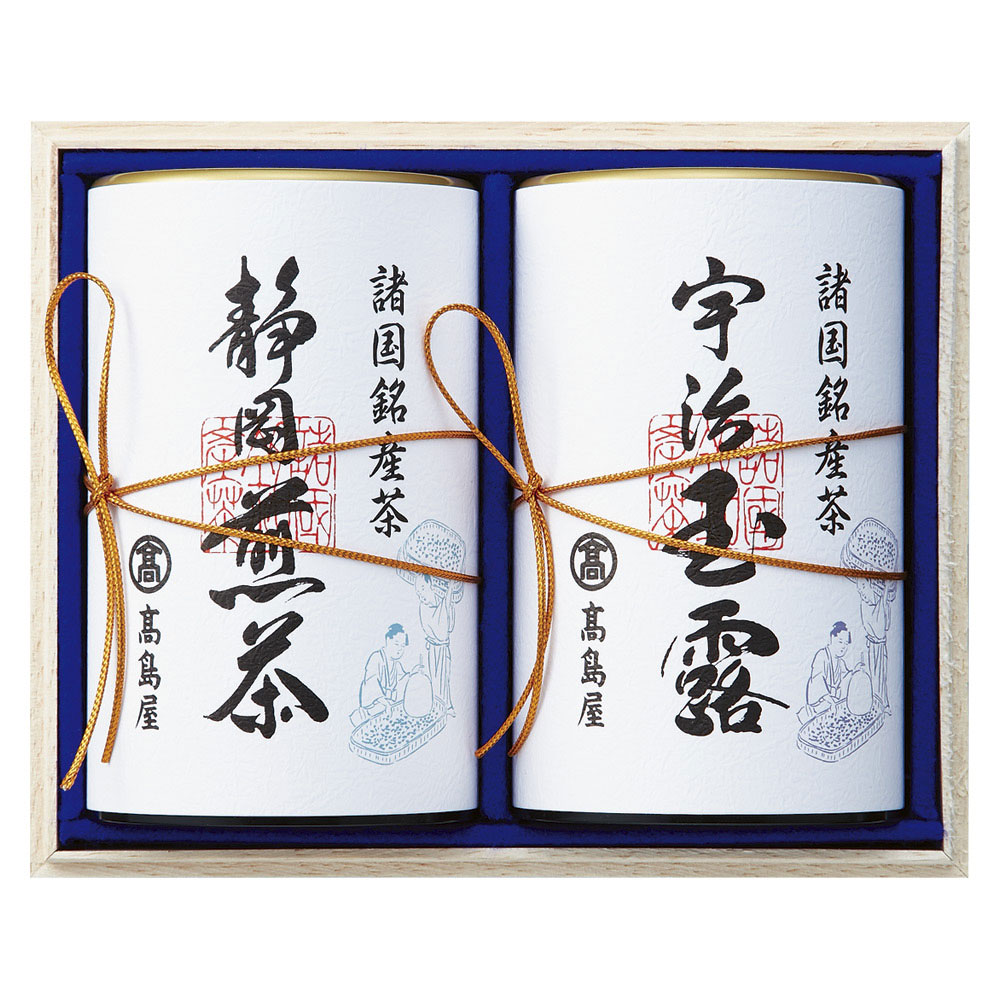 諸国銘産茶
宇治玉露
髙
髙島屋
諸国銘産茶
静岡煎茶
髙
髙島屋